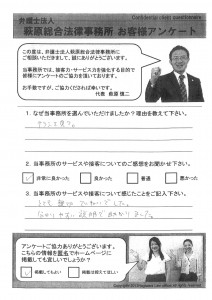 弁護士法人
萩原総合法律事務所 お客様アンケート
この度は、弁護士法人萩原総合法律事務所に
ご相談いただきまして、誠にありがとうございます。
当事務所では、接客力・サービス力を強化する目的で
皆様にアンケートのご協力を頂いております。
お手数ですが、ご協力くださいますれば幸いです。
代表 萩原 慎二
1. なぜ当事務所を選んでいただけましたか?理由を教えて下さい。
2. 当事務所のサービスや接客についてのご感想をお聞かせ下さい。
非常に良かった 良かった 普通 悪かった
3. 当事務所のサービスや接客について感じたことをご記入下さい。
とても
分かりやすい説明で助かりました。
アンケートご協力ありがとうございます。
こちらの情報を匿名でホームページに
掲載しても宜しいでしょうか?
掲載してもよい 掲載は控えてほしい